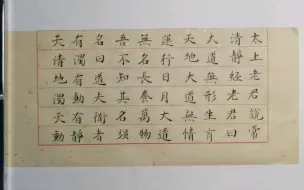 太上老君說常
清靜經老君曰
大道無形生育
天地大道無情
運行日月大道
無名長養萬物
吾不知其名強
名曰道夫衜者
有濁有動有靜
天清地濁天動